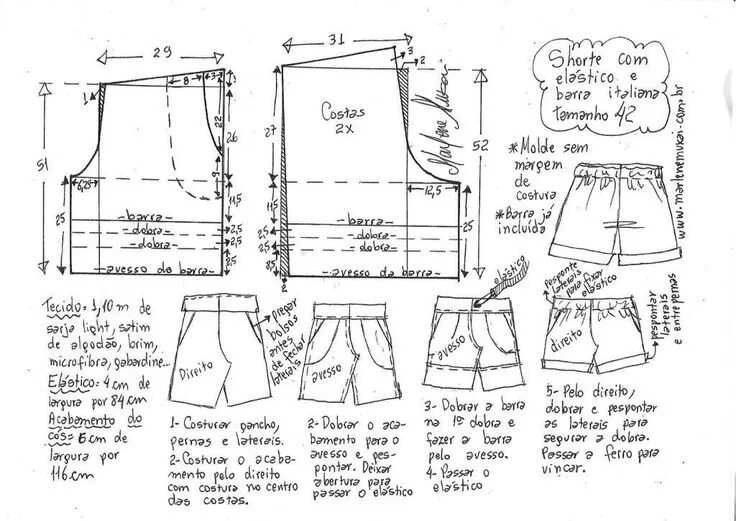 29
31
Shorte com
elástico e
barra italiana
tamanho 42
www.marlenemukai.com.br
* Molde sem
margem
de
costura
* Barra já
incluída
8
3
3
1
22
26
9
51
6,25
25
11,5
-barra-
-dobra-
-dobra-
2,5
2,5
avesso da barra
3
2
Costas
2X
Marlene Mukai
27
52
12,5
11,5
25
-barra-
2,5
-dobra-
2,5
-dobra-
8,5
-avesso da barra-
2
Tecido= 1,10 m de
sarja light, satim
de algodão, brim,
microfibra, gabardine...
Elástico= 4 cm de
largura por 84 cm
Acabamento do
cós= 6 cm de
largura por
116 cm
Direito
pregar
bolsos
antes
de fechar
laterais
avesso
elástico
avesso
pesponte
laterais
para fixar
elástico
direito
pespontar
laterais
e entrepernas
1- Costurar gancho,
pernas e laterais.
2- Costurar o acaba-
mento pelo direito
com costura no centro
das costas.
2- Dobrar o aca-
bamento para o
avesso e pes-
pontar. Deixar
abertura para
passar o elástico
3- Dobrar a barra
na 1ª dobra e
fazer a barra
pelo avesso.
4- Passar o
elástico
5- Pelo direito,
dobrar e pespontar
as laterais para
segurar a dobra.
Passar a ferro para
vincar.